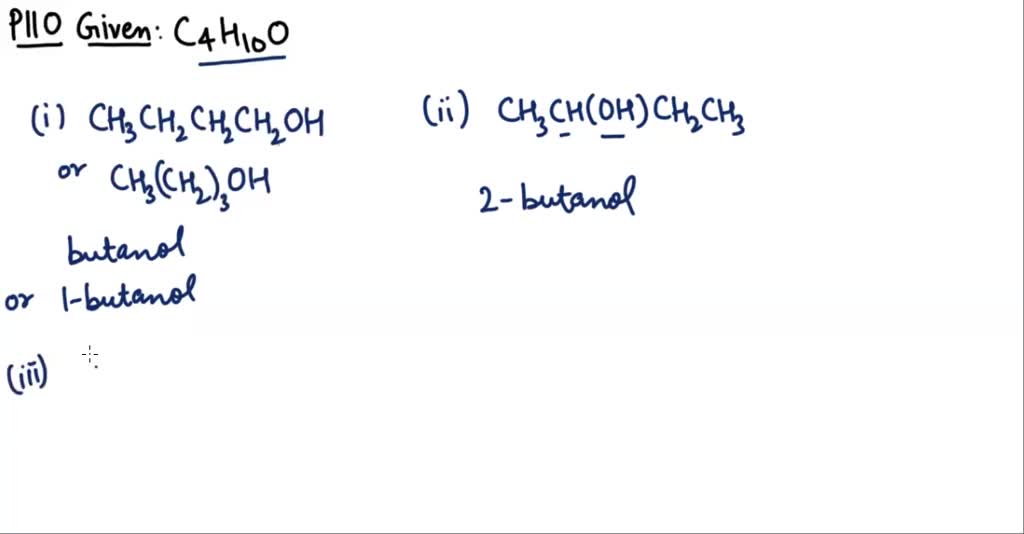 P110 Given: C4H10O
(i) CH3CH2CH2CH2OH
or CH3(CH2)3OH
butanol
or 1-butanol
(ii) CH3CH(OH)CH2CH3
2-butanol
(iii)